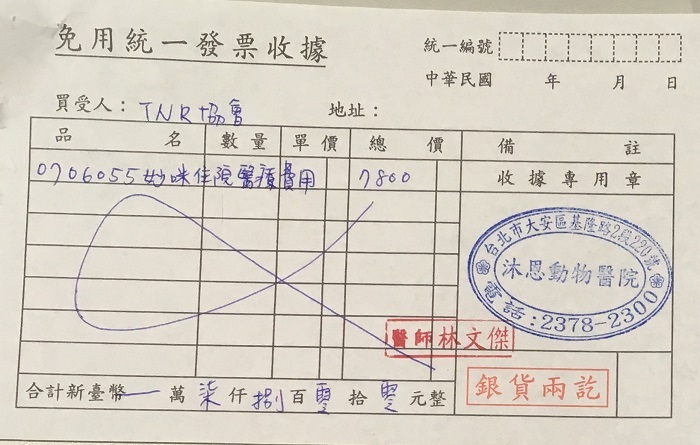 免用統一發票收據
統一編號
中華民國 年 月 日
買受人：TNR協會 地址：
品名 數量 單價 總價 備註
0706055妙咪住院醫療費用 7800 收據專用章
台北市大安區基隆路2段220號
沐恩動物醫院
電話:2378-2300
醫師林文傑
銀貨兩訖
合計新臺幣 萬柒仟捌百零拾零元整